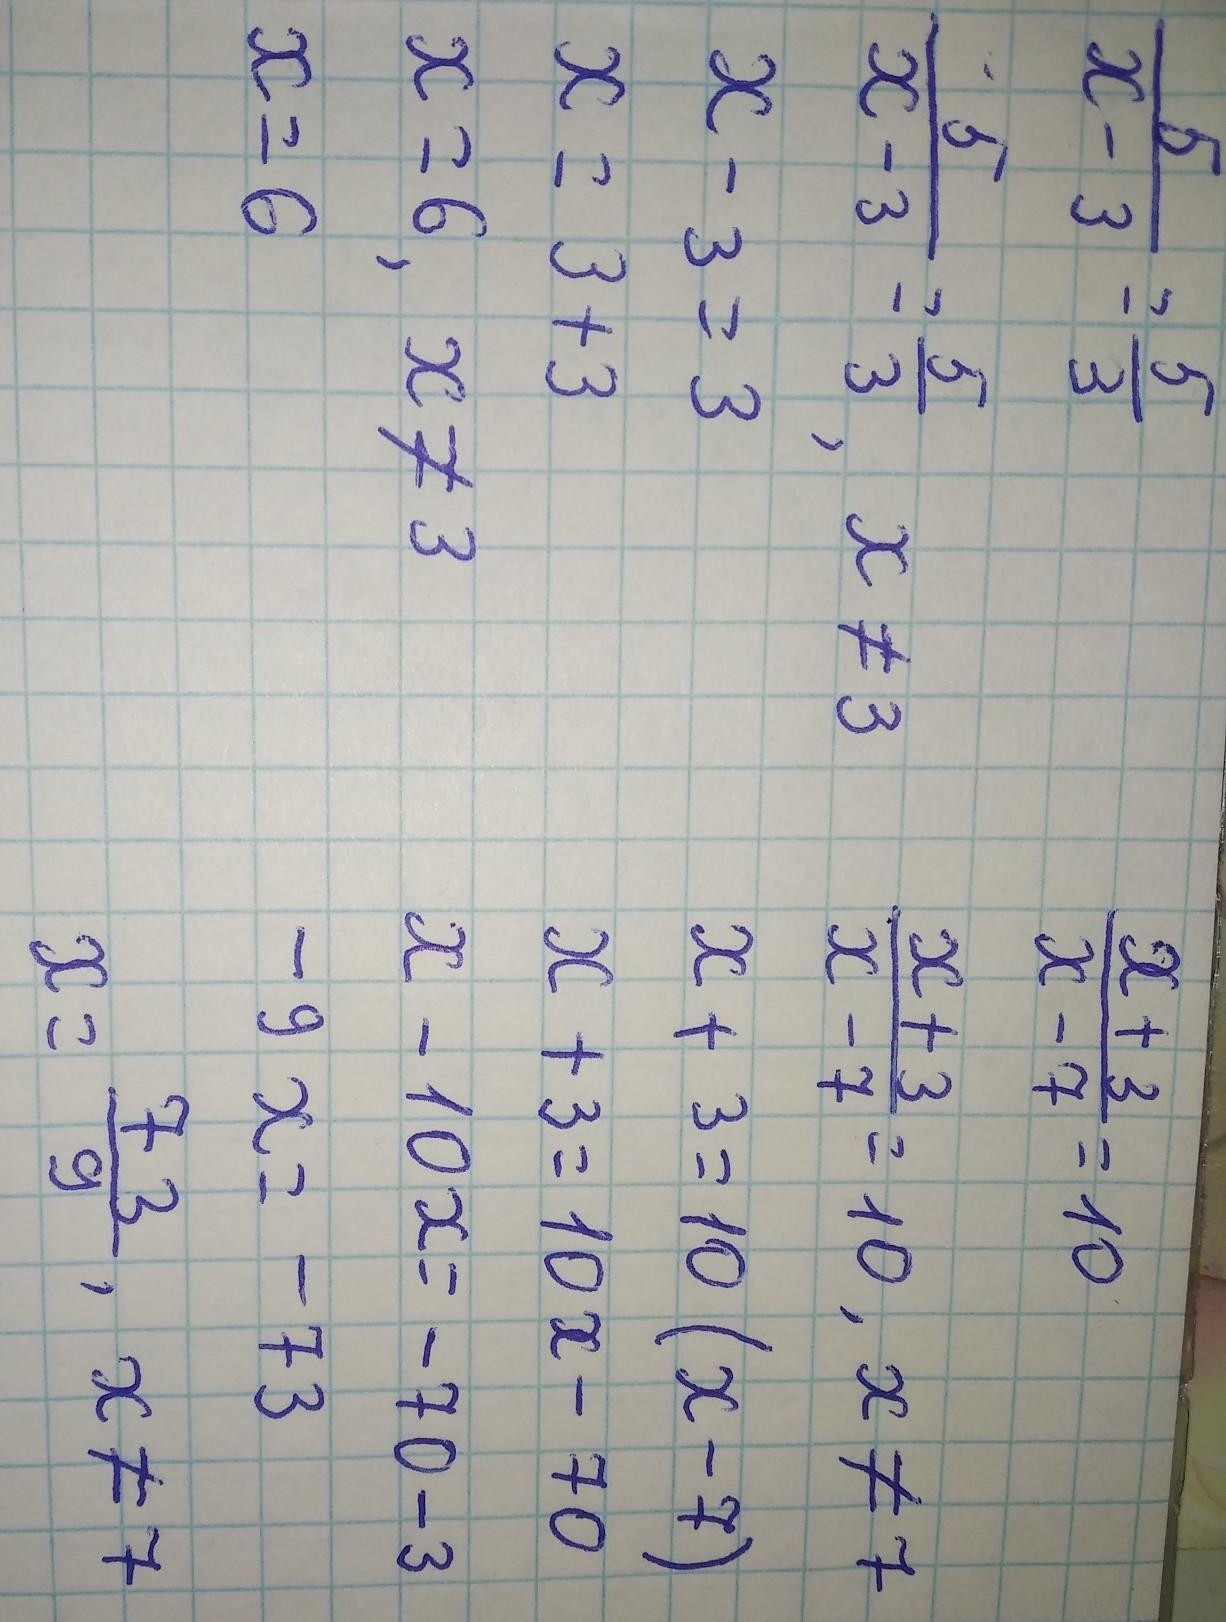 5/(x-3) = 5/3
5/(x-3) = 5/3, x ≠ 3
x - 3 = 3
x = 3 + 3
x = 6, x ≠ 3
x = 6
(x+3)/(x-7) = 10
(x+3)/(x-7) = 10, x ≠ 7
x + 3 = 10 (x - 7)
x + 3 = 10x - 70
x - 10x = -70 - 3
-9x = -73
x = 73/9, x ≠ 7